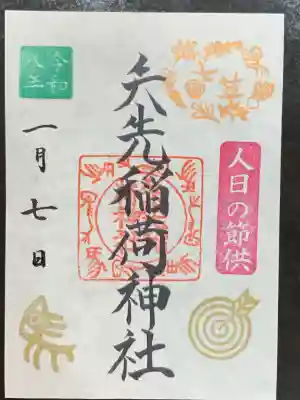 人日の節供
矢先稲荷神社
令和
一月七日